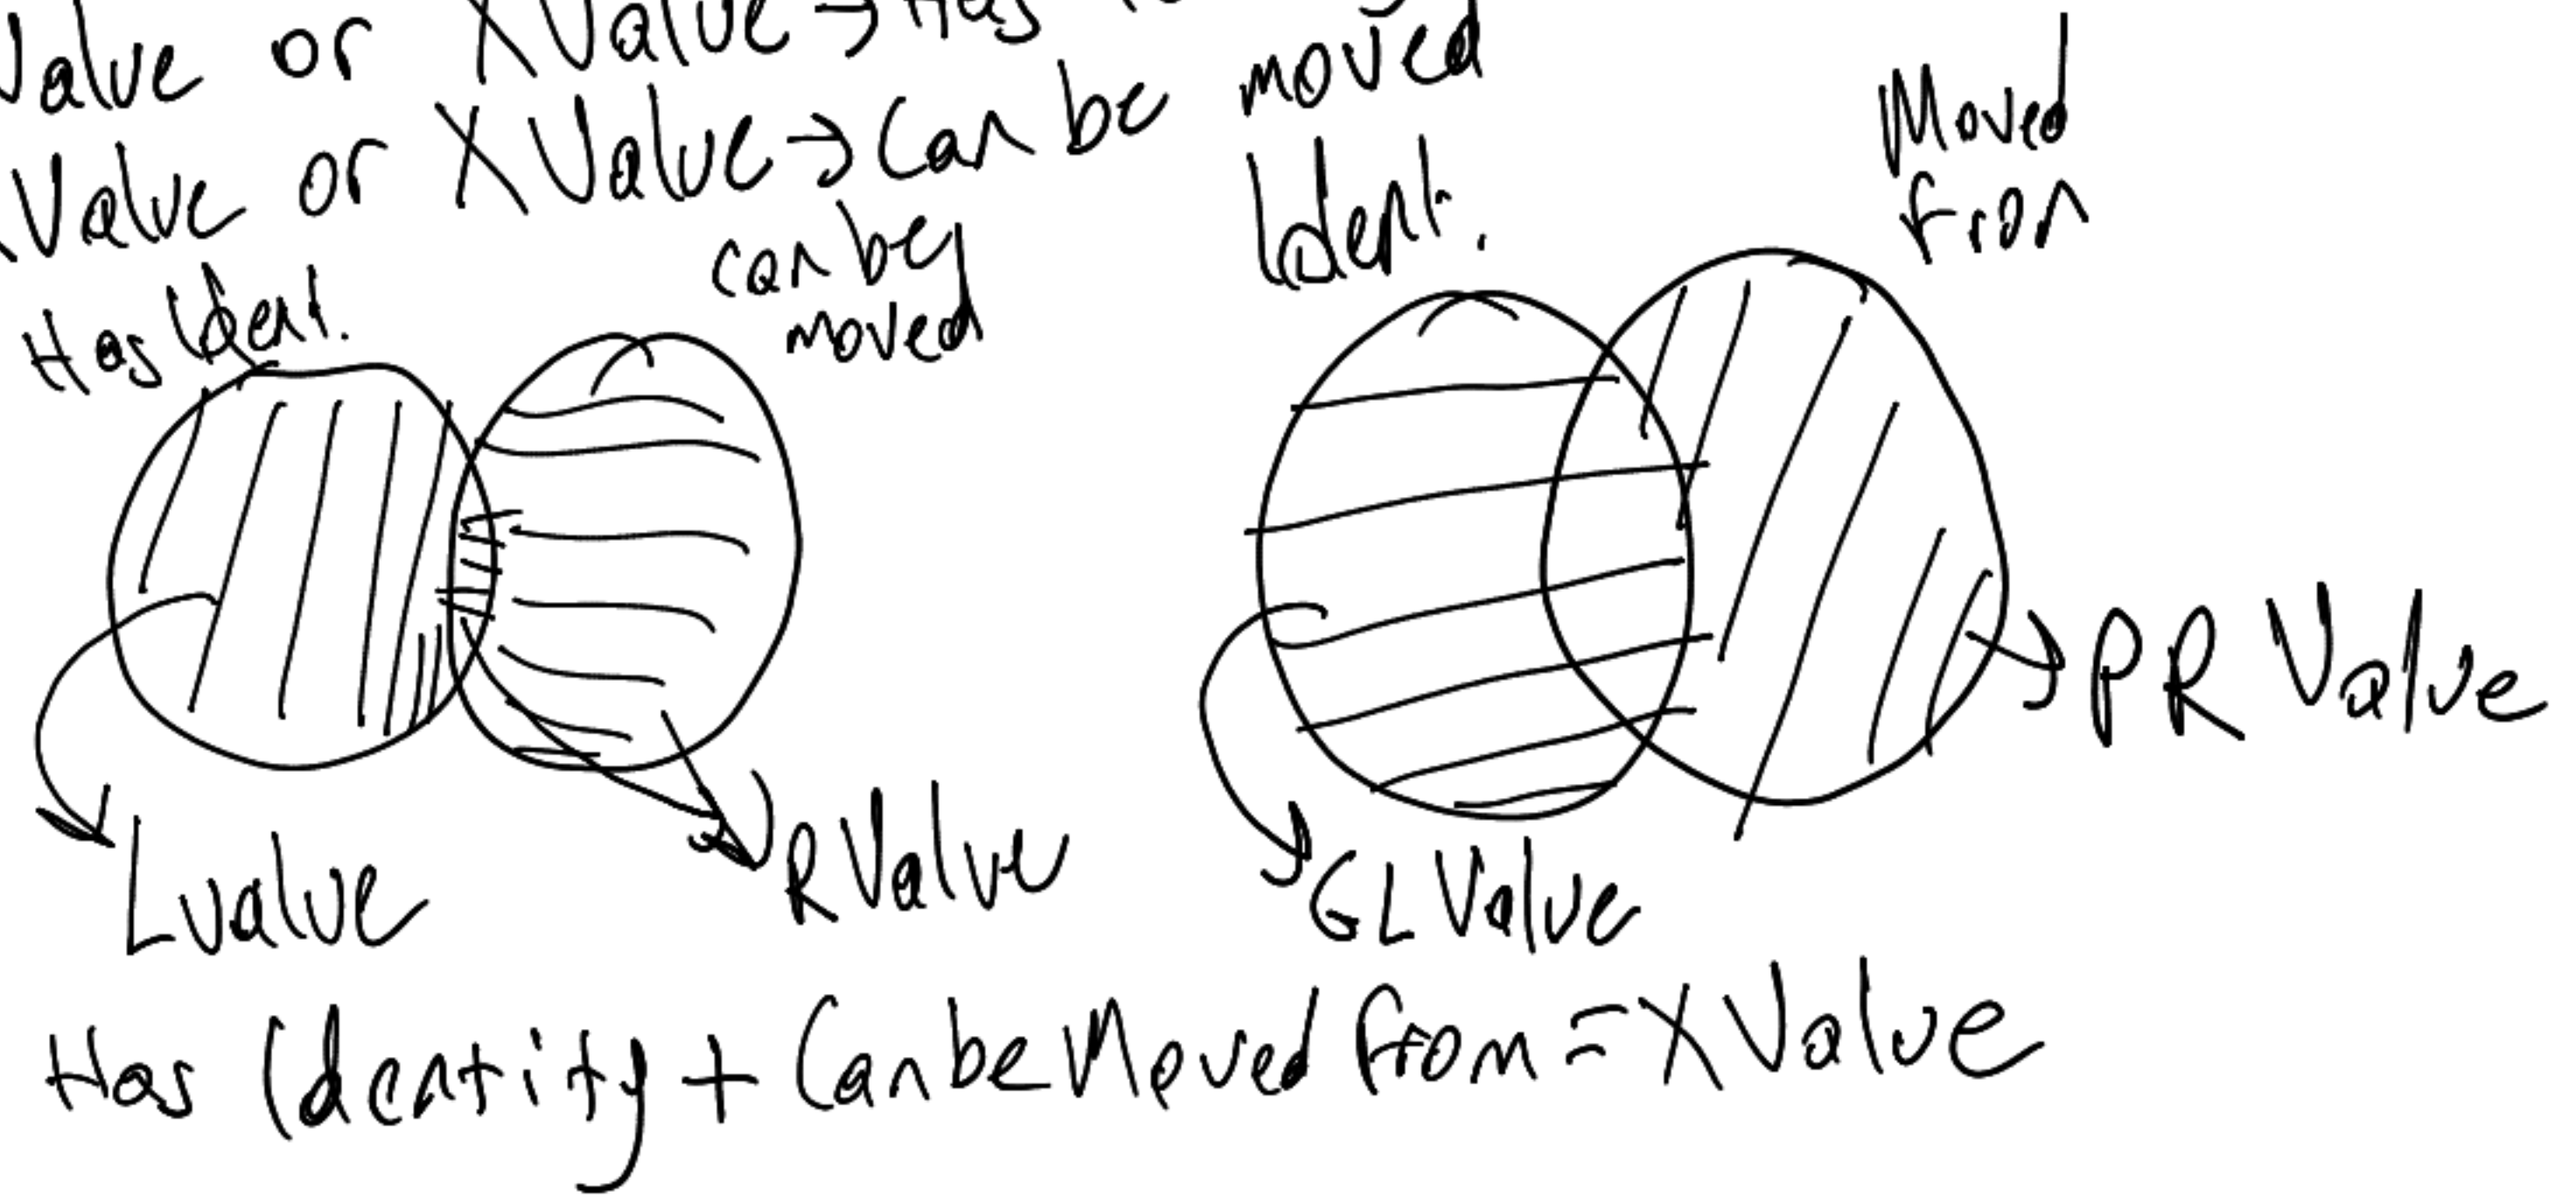 Value or XValue → Has
Value or XValue → Can be moved
Has Ident.
can be
moved
Ident.
Moved
from
PR Value
Lvalue
RValue
GL Value
Has Identity + Can be Moved from = XValue